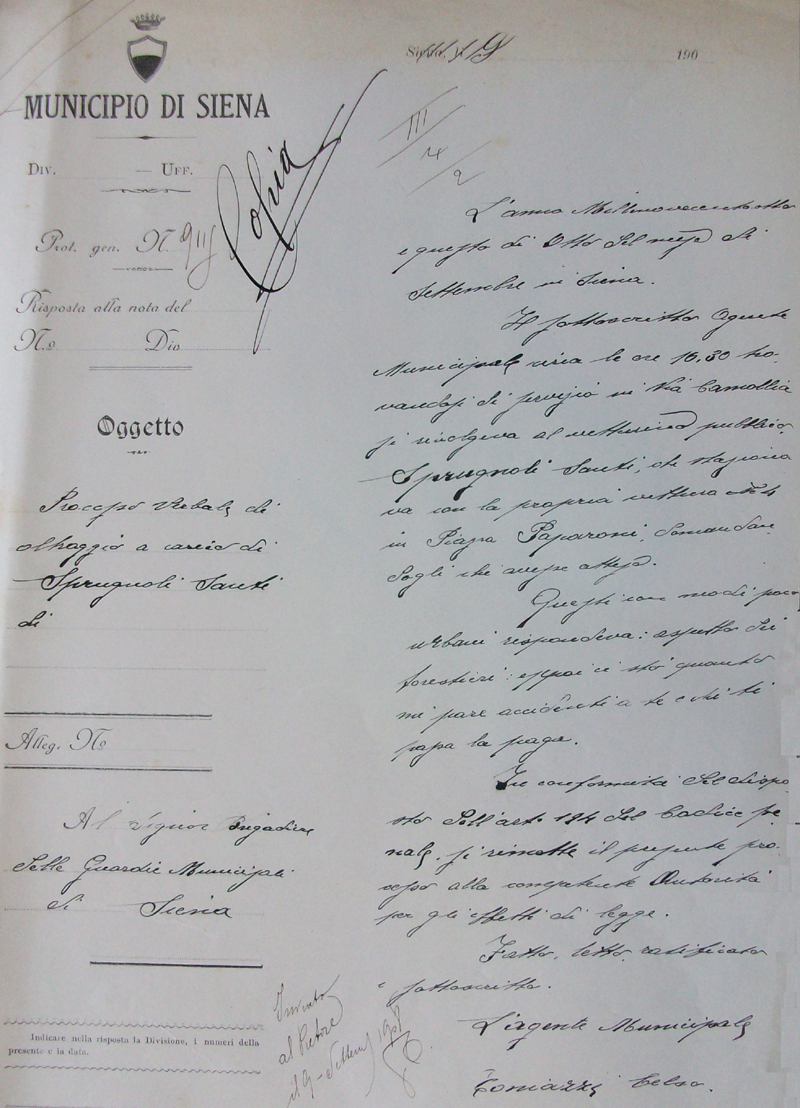 MUNICIPIO DI SIENA
Div. — Uff.
Prot. gen. N.
Copia
Risposta alla nota del
N.o Div
Oggetto
Processo Verbale di
oltraggio a carico di
Sprugnoli Santi
di
Alleg. No
Al Signor Brigadiere
delle Guardie Municipali
di Siena
Indicare nella risposta la Divisione, i numeri della
presente e la data.
Siena, 190
III
4
2
L'anno Millenovecentootto
e questo dì Otto del mese di
Settembre in Siena.
Il sottoscritto Agente
Municipale verso le ore 10.30 tro
vandosi di servizio in Via Camollia
si rivolgeva al vetturino pubblico
Sprugnoli Santi, che staziona
va con la propria vettura N. 4
in Piazza Paparoni, domandan
dogli che avesse atteso.
Questi con modi poco
urbani rispondeva: aspetto dei
forestieri: eppoi ci sto quanto
mi pare accidenti a te e chi ti
papa la paga.
In conformità del dispo
sto dell'art. 194 del Codice pe
nale, si rimette il presente pro
cesso alla competente Autorità
per gli effetti di legge.
Fatto, letto, ratificato
e sottoscritto.
L'agente Municipale
Tomazzi Celso.
Inviato
al Pretore
il 9 - Settem 1908